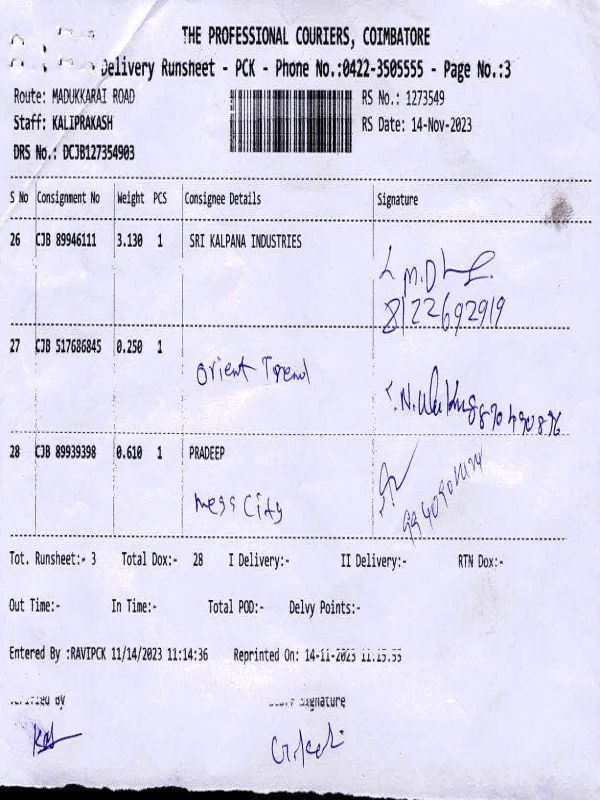 THE PROFESSIONAL COURIERS, COIMBATORE
Delivery Runsheet - PCK - Phone No.:0422-3505555 - Page No.:3
Route: MADUKKARAI ROAD RS No.: 1273549
Staff: KALIPRAKASH RS Date: 14-Nov-2023
DRS No.: DCJB127354903
S No Consignment No Weight PCS Consignee Details Signature
26 CJB 89946111 3.130 1 SRI KALPANA INDUSTRIES
8122692919
27 CJB 517686845 0.250 1
Orient Trend
28 CJB 89939398 0.610 1 PRADEEP
Mess City
Tot. Runsheet:- 3 Total Dox:- 28 I Delivery:- II Delivery:- RTN Dox:-
Out Time:- In Time:- Total POD:- Delvy Points:-
Entered By :RAVIPCK 11/14/2023 11:14:36 Reprinted On: 14-11-2023 11:15:55
By Signature